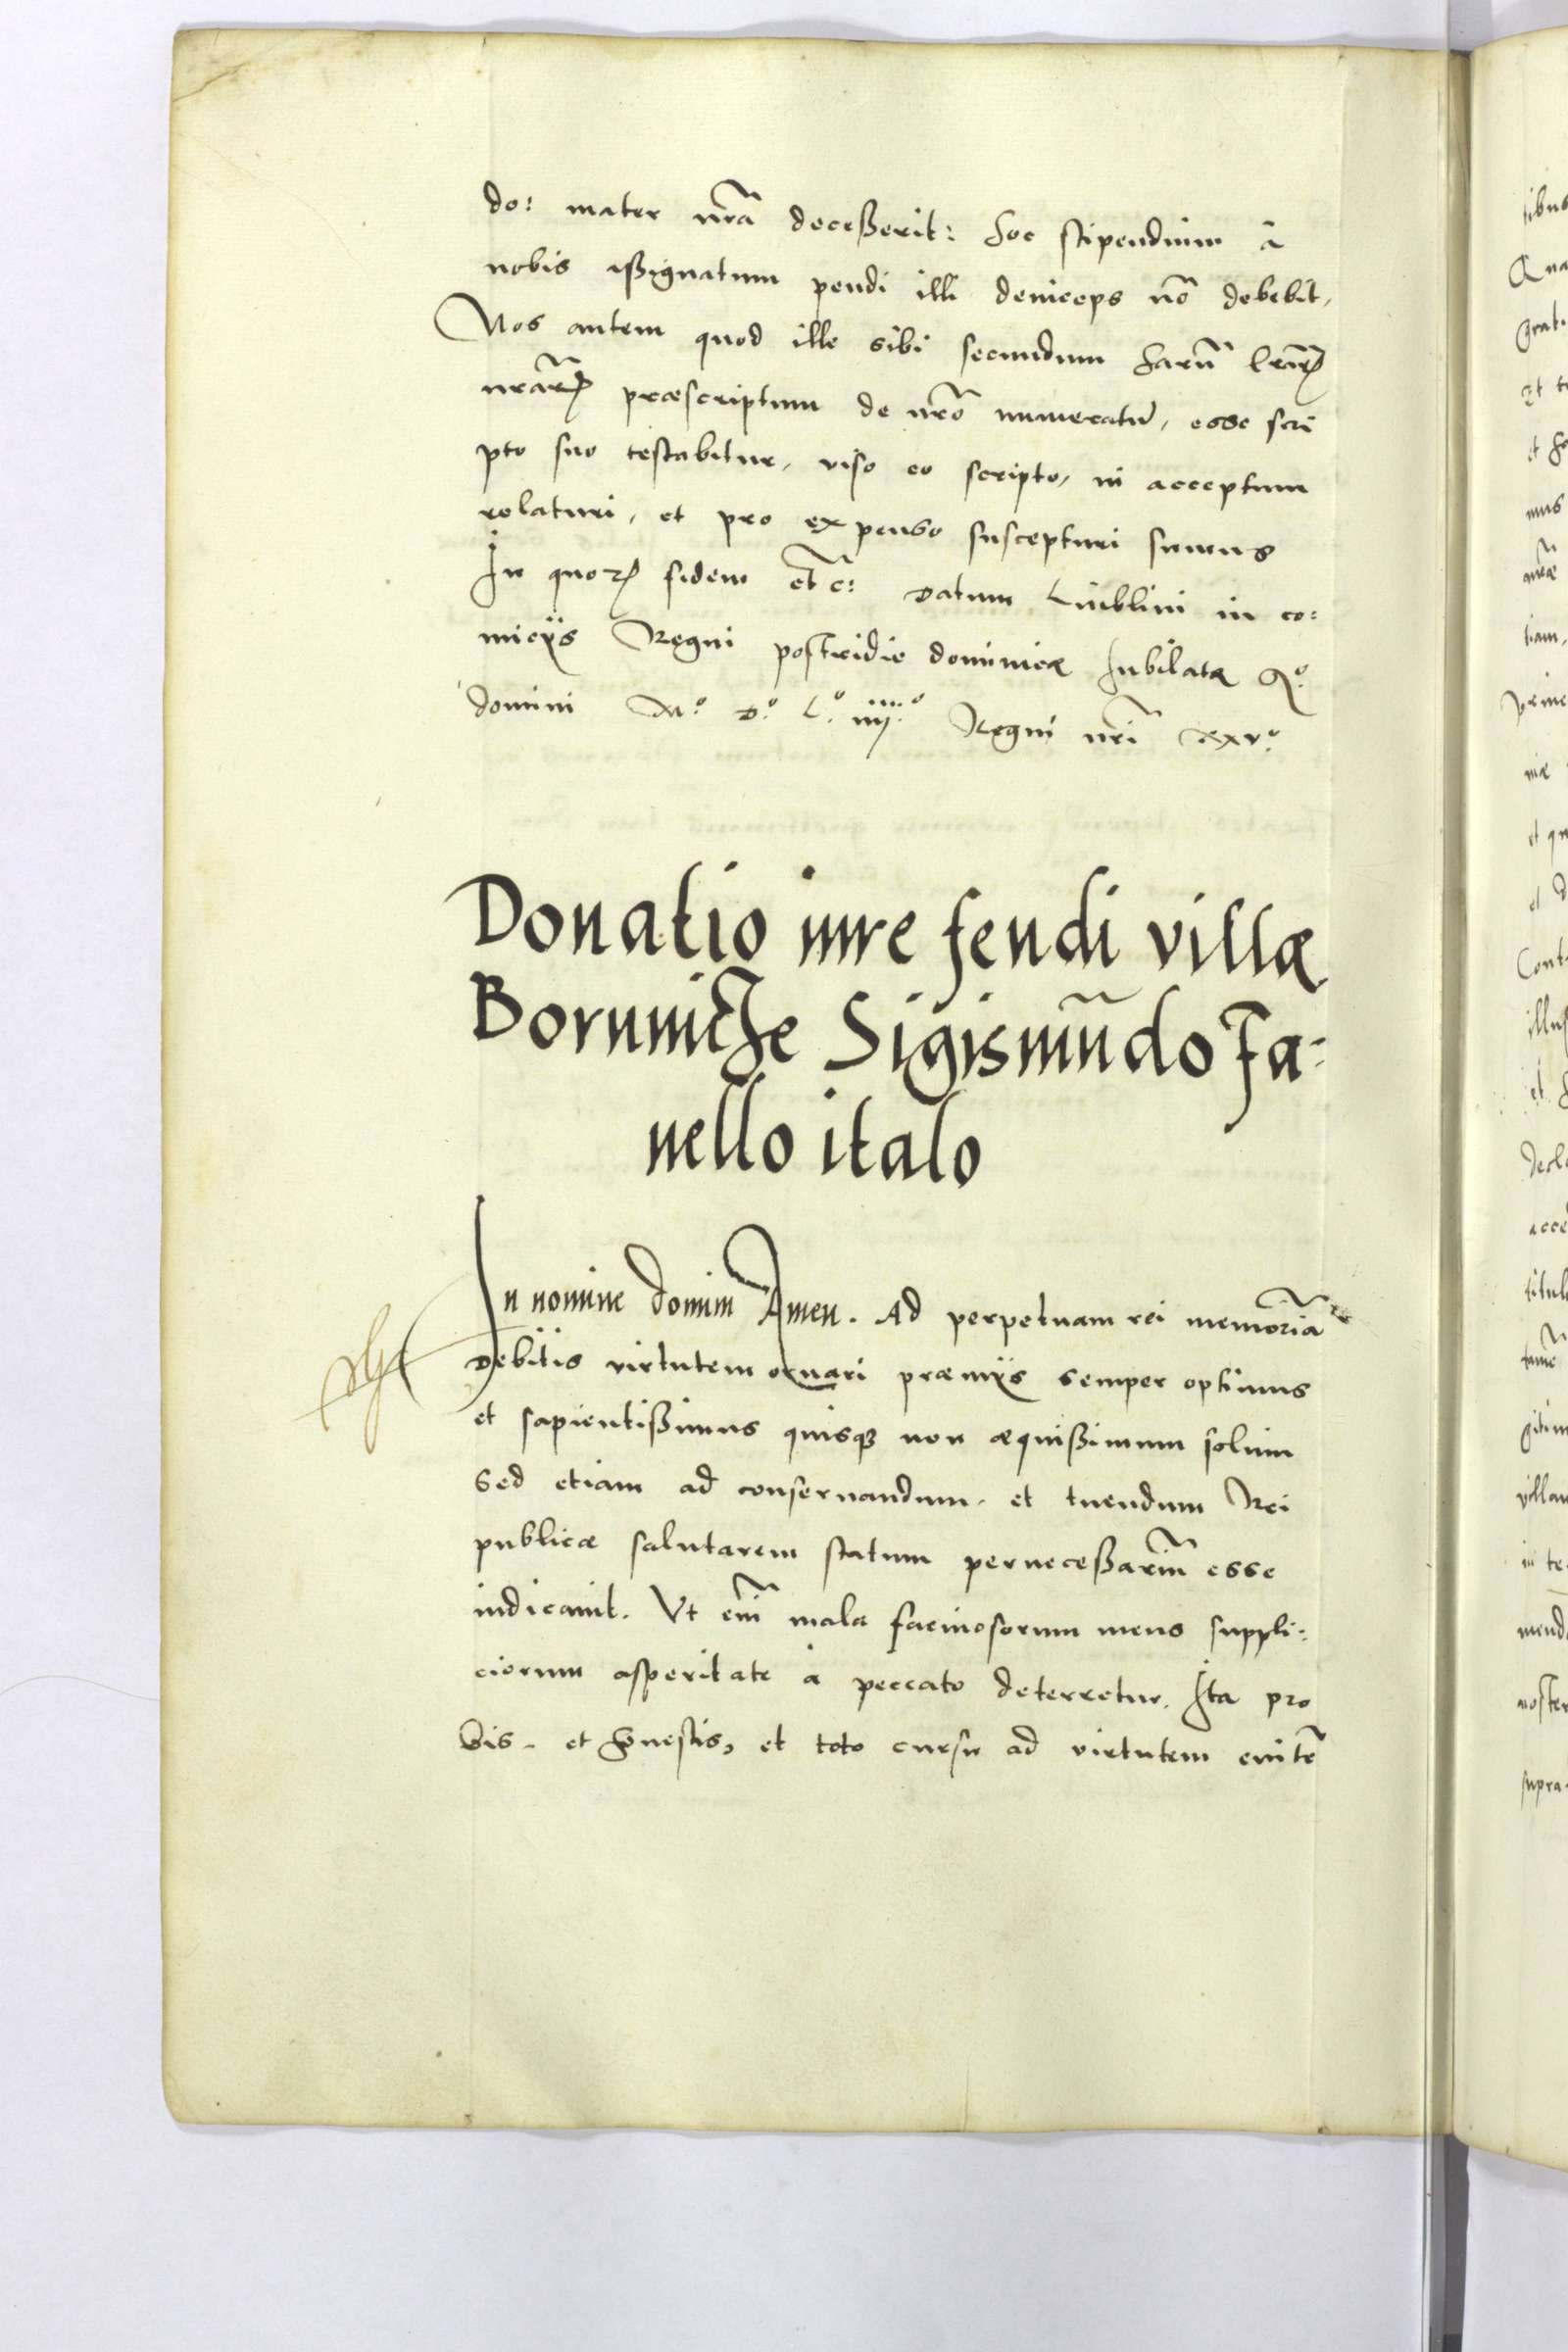 do: mater nr̃a deceßerit: hoc stipendium à
nobis aßignatum pendi illi deinceps nõ debebit,
Nos autem quod ille sibi secundum harũ lr̃arꝝ
nr̃arꝝ præscriptum de nr̃o numeratũ, esse scri
pto suo testabitur, viso eo scripto, in acceptum
relaturi, et pro expenso suscepturi sumus
In quorꝝ fidem etc̃: Datum Lublini in co:
micijs Regni postridie dominicæ Iubilatæ Aº.
domini Mº. Dº. Lº. iiijº. Regni nr̃i xxvº.
Donatio iure feudi villæ
Boruniche Sigismũdo Fa:
nello italo
In nomine domini Amen. Ad perpetuam rei memoriã
Debitis virtutem ornari præmijs semper optimus
et sapientißimus quisqꝫ non æquißimum solum
sed etiam ad conseruandum, et tuendum Rei
publicæ salutarem statum perneceßariũ esse
iudicauit. Vt em̃ mala facinosorum mens suppli:
ciorum asperitate à peccato deterretur. Ita pro
bis, et honestis, et toto cursu ad virtutem enitẽ